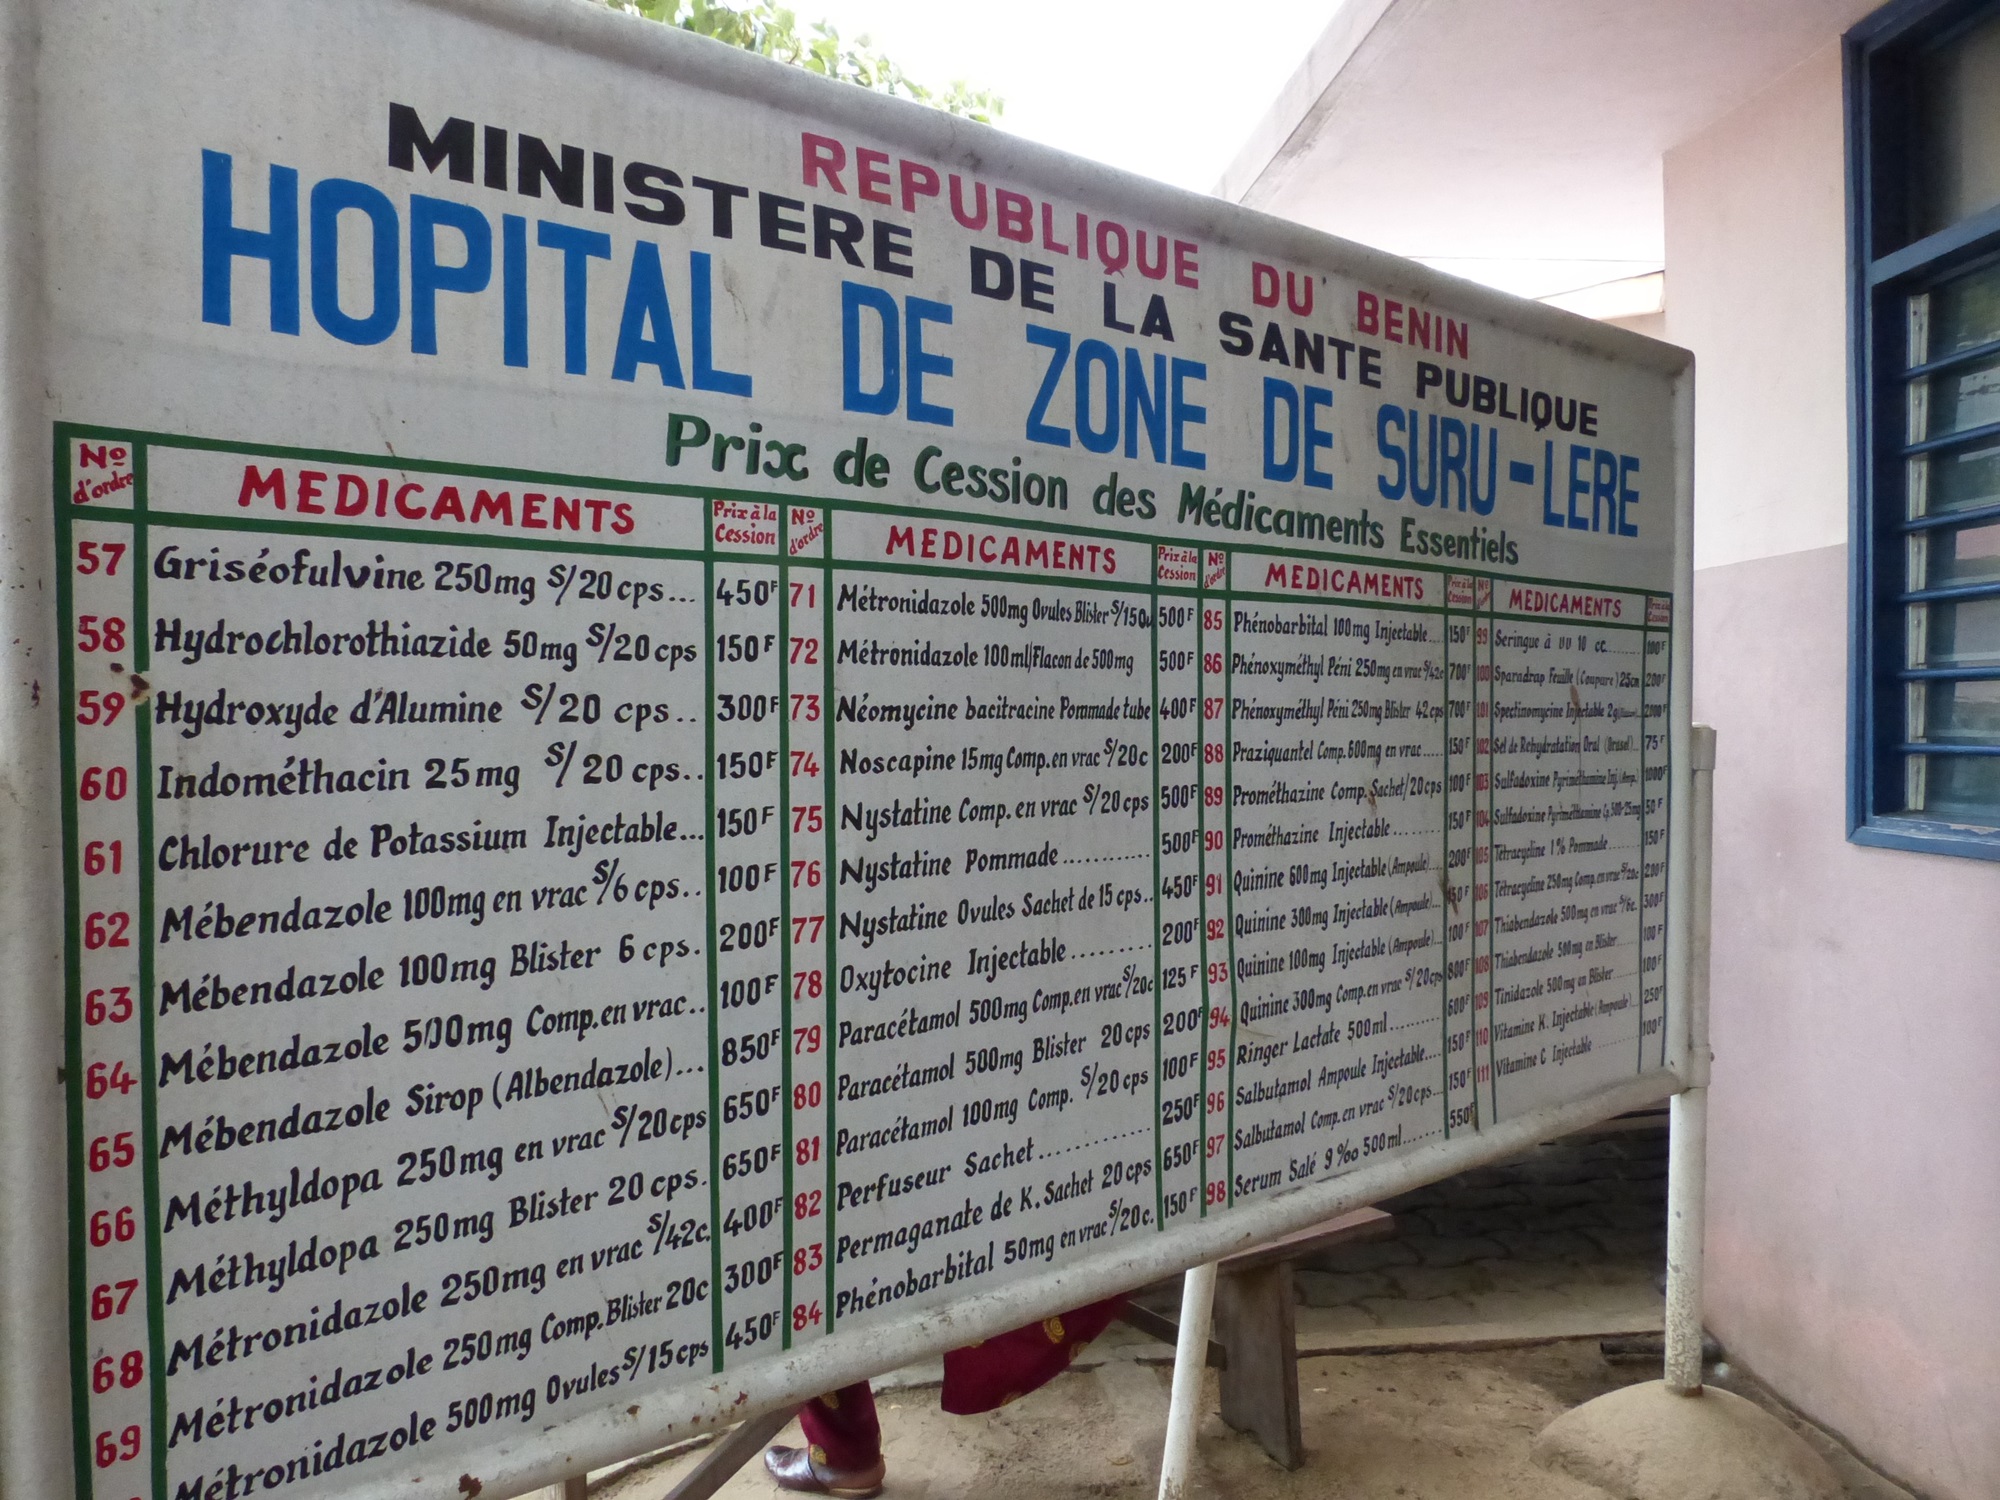 REPUBLIQUE DU BENIN
MINISTERE DE LA SANTE PUBLIQUE
HOPITAL DE ZONE DE SURU-LERE
Prix de Cession des Médicaments Essentiels
Nº d'ordre MEDICAMENTS Prix à la Cession
57 Griséofulvine 250mg S/20 cps... 450F
58 Hydrochlorothiazide 50mg S/20 cps 150F
59 Hydroxyde d'Alumine S/20 cps.. 300F
60 Indométhacin 25mg S/20 cps.. 150F
61 Chlorure de Potassium Injectable... 150F
62 Mébendazole 100mg en vrac S/6 cps.. 100F
63 Mébendazole 100mg Blister 6 cps. 200F
64 Mébendazole 500mg Comp. en vrac.. 100F
65 Mébendazole Sirop (Albendazole)... 850F
66 Méthyldopa 250mg en vrac S/20cps 650F
67 Méthyldopa 250mg Blister 20 cps. 650F
68 Métronidazole 250mg en vrac S/42c. 400F
69 Métronidazole 250mg Comp. Blister 20c 300F
Métronidazole 500mg Ovules S/15cps 450F
Nº d'ordre MEDICAMENTS Prix à la Cession
71 Métronidazole 500mg Ovules Blister S/15 500F
72 Métronidazole 100ml/Flacon de 500mg 500F
73 Néomycine bacitracine Pommade tube 400F
74 Noscapine 15mg Comp. en vrac S/20c 200F
75 Nystatine Comp. en vrac S/20cps 500F
76 Nystatine Pommade............ 500F
77 Nystatine Ovules Sachet de 15 cps.. 450F
78 Oxytocine Injectable........ 200F
79 Paracétamol 500mg Comp. en vrac S/20c 125F
80 Paracétamol 500mg Blister 20cps 200F
81 Paracétamol 100mg Comp. S/20cps 100F
82 Perfuseur Sachet........... 250F
83 Permaganate de K. Sachet 20 cps 650F
84 Phénobarbital 50mg en vrac S/20c. 150F
Nº d'ordre MEDICAMENTS Prix à la Cession
85 Phénobarbital 100mg Injectable.... 150F
86 Phénoxyméthyl Péni 250mg en vrac S/42c 700F
87 Phénoxyméthyl Péni 250mg Blister 42cps 700F
88 Praziquantel Comp. 600mg en vrac..... 150F
89 Prométhazine Comp. Sachet/20cps 100F
90 Prométhazine Injectable........ 150F
91 Quinine 600mg Injectable (Ampoule).... 200F
92 Quinine 300mg Injectable (Ampoule)... 150F
93 Quinine 100mg Injectable (Ampoule).. 100F
94 Quinine 300mg Comp. en vrac S/20cps 800F
95 Ringer Lactate 500ml......... 600F
96 Salbutamol Ampoule Injectable.... 150F
97 Salbutamol Comp. en vrac S/20cps... 150F
98 Serum Salé 9‰ 500ml....... 550F
Nº MEDICAMENTS Prix à la Cession
99 Seringue à 10 cc....... 100F
100 Sparadrap Feuille (Coupure) 25cm 200F
101 Spectinomycine Injectable 2g 2000F
102 Sel de Rehydratation Oral (Orasel)... 75F
103 Sulfadoxine Pyriméthamine Inj. (Amp.) 1000F
104 Sulfadoxine Pyriméthamine Cp. 500-25mg 50F
105 Tétracycline 1% Pommade....... 150F
106 Tétracycline 250mg Comp. en vrac S/20c 200F
107 Thiabendazole 500mg en vrac S/6c. 300F
108 Thiabendazole 500mg en Blister...... 100F
109 Tinidazole 500mg en Blister....... 100F
110 Vitamine K. Injectable (Ampoule).. 250F
111 Vitamine C Injectable ........ 100F